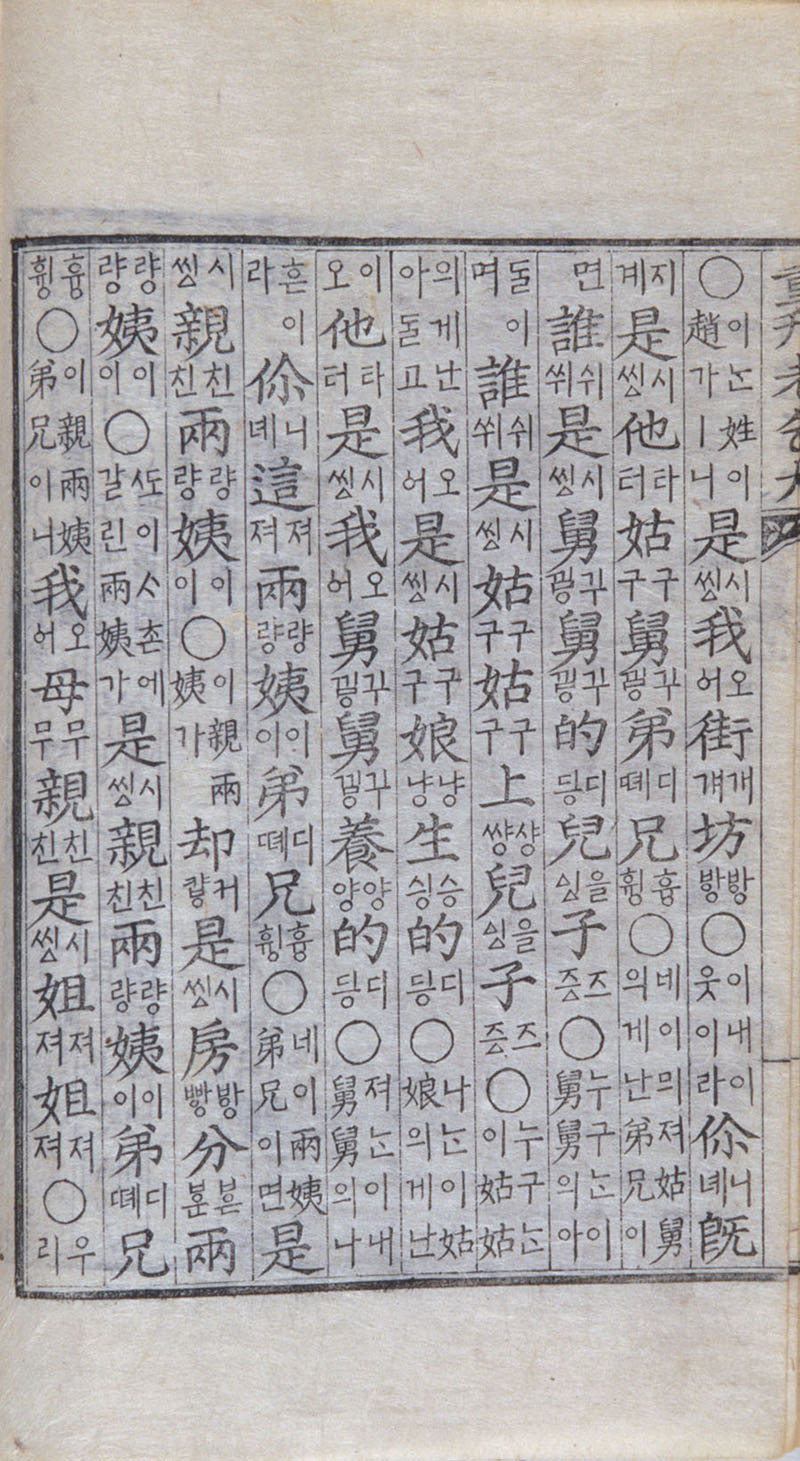 重刊老乞大
○이ᄂᆞᆫ姓이趙가ㅣ니是시씽我오어街개걔坊방방○이내이웃이라你니녜旣
지계是시씽他타터姑구구舅꾸끼ᇢ弟디뗴兄흉휭○네이믜져姑舅의게난弟兄이
면誰쉬쒸是시씽舅꾸끼ᇢ舅꾸끼ᇢ的디딍兒을싱子즈증○누구ᄂᆞᆫ이舅舅의아
돌이며誰쉬쒸是시씽姑구구姑구구上샹썅兒을싱子즈증○누구ᄂᆞᆫ이姑姑
의게난아돌고我오어是시씽姑구구娘냥냥生승싱的디딍○나ᄂᆞᆫ이姑娘의게난
이오他타터是시씽我오어舅꾸끼ᇢ舅꾸끼ᇢ養양양的디딍○져ᄂᆞᆫ이내舅舅의나
흔이라你니녜這져져兩량량姨이이弟디뗴兄흉휭○네이兩姨弟兄이면是
시씽親친친兩량량姨이이○이親兩姨가却커是시씽房방빵分흔분兩
량량姨이이○ᄯᅩ이ᄉᆞ촌에갈린兩姨가是시씽親친친兩량량姨이이弟디뗴兄
흉휭○이親兩姨弟兄이니我오어母무무親친친是시씽姐져져姐져져○우리